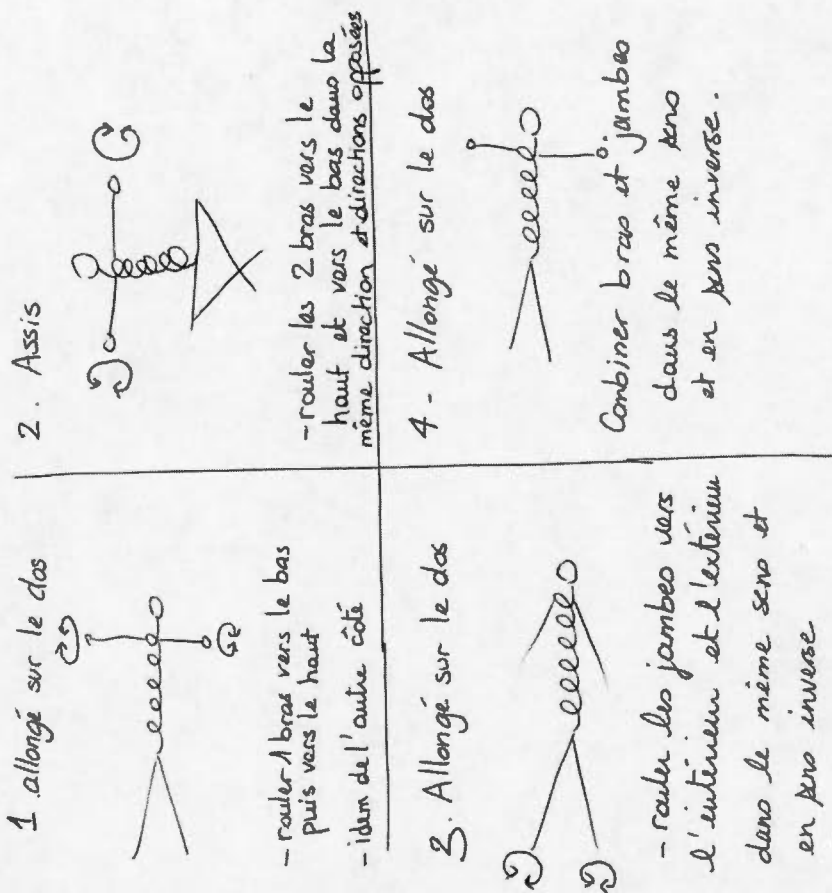 1 allongé sur le dos
- rouler 1 bras vers le bas
puis vers le haut
- idem de l'autre côté
2. Assis
- rouler les 2 bras vers le
haut et vers le bas dans la
même direction et directions opposées
3. Allongé sur le dos
- rouler les jambes vers
l'intérieur et l'extérieur
dans le même sens et
en sens inverse
4 - Allongé sur le dos
Combiner bras et jambes
dans le même sens
et en sens inverse.